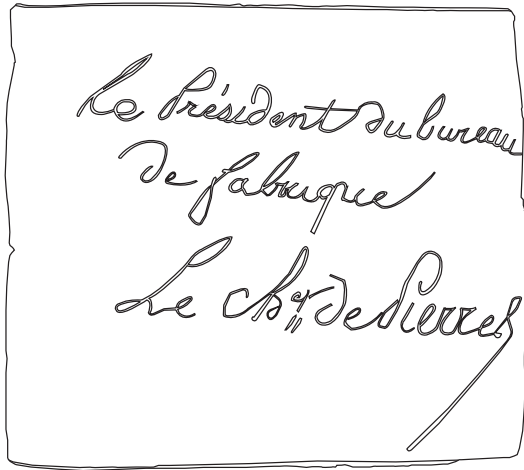 Le Président du bureau
de fabrique
Le Ch.er de Pierres